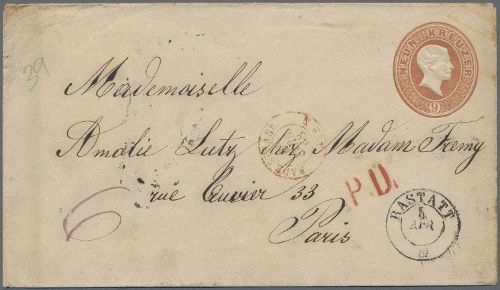 39
NEUN KREUZER
9
Mademoiselle
Amalie Lutz chez Madam Fremy
rue Cuvier 33
Paris
P.D.
RASTATT
5
APR
6